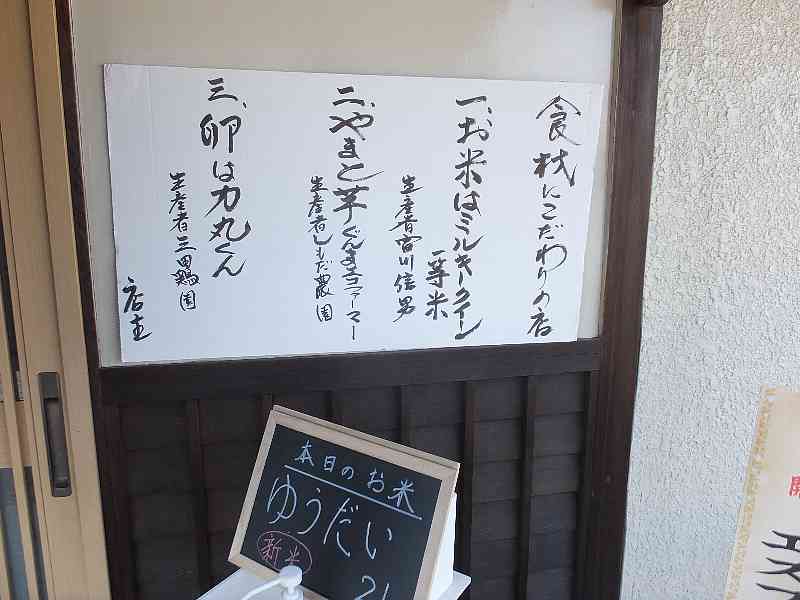 食材にこだわりの店
一、お米はミルキークイン
一等米
生産者宮川信男
二、やまと芋ぐんまエコファーマー
生産者しもだ農園
三、卵は力丸くん
生産者三田鶏園
店主
本日のお米
ゆうだい
新米